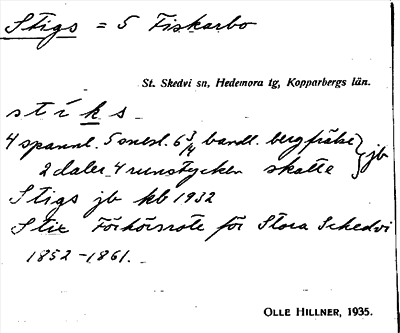 Stigs = 5 Fiskarbo
St. Skedvi sn, Hedemora tg, Kopparbergs län.
stiks
4 spannl. 5 snesl. 6 3/4 bandl. bergfrälse } jb
2 daler 4 runstycken skatte
Stigs jb kb 1932
Stix Förhörsrote för Stora Skedvi
1852-1861.
OLLE HILLNER, 1935.